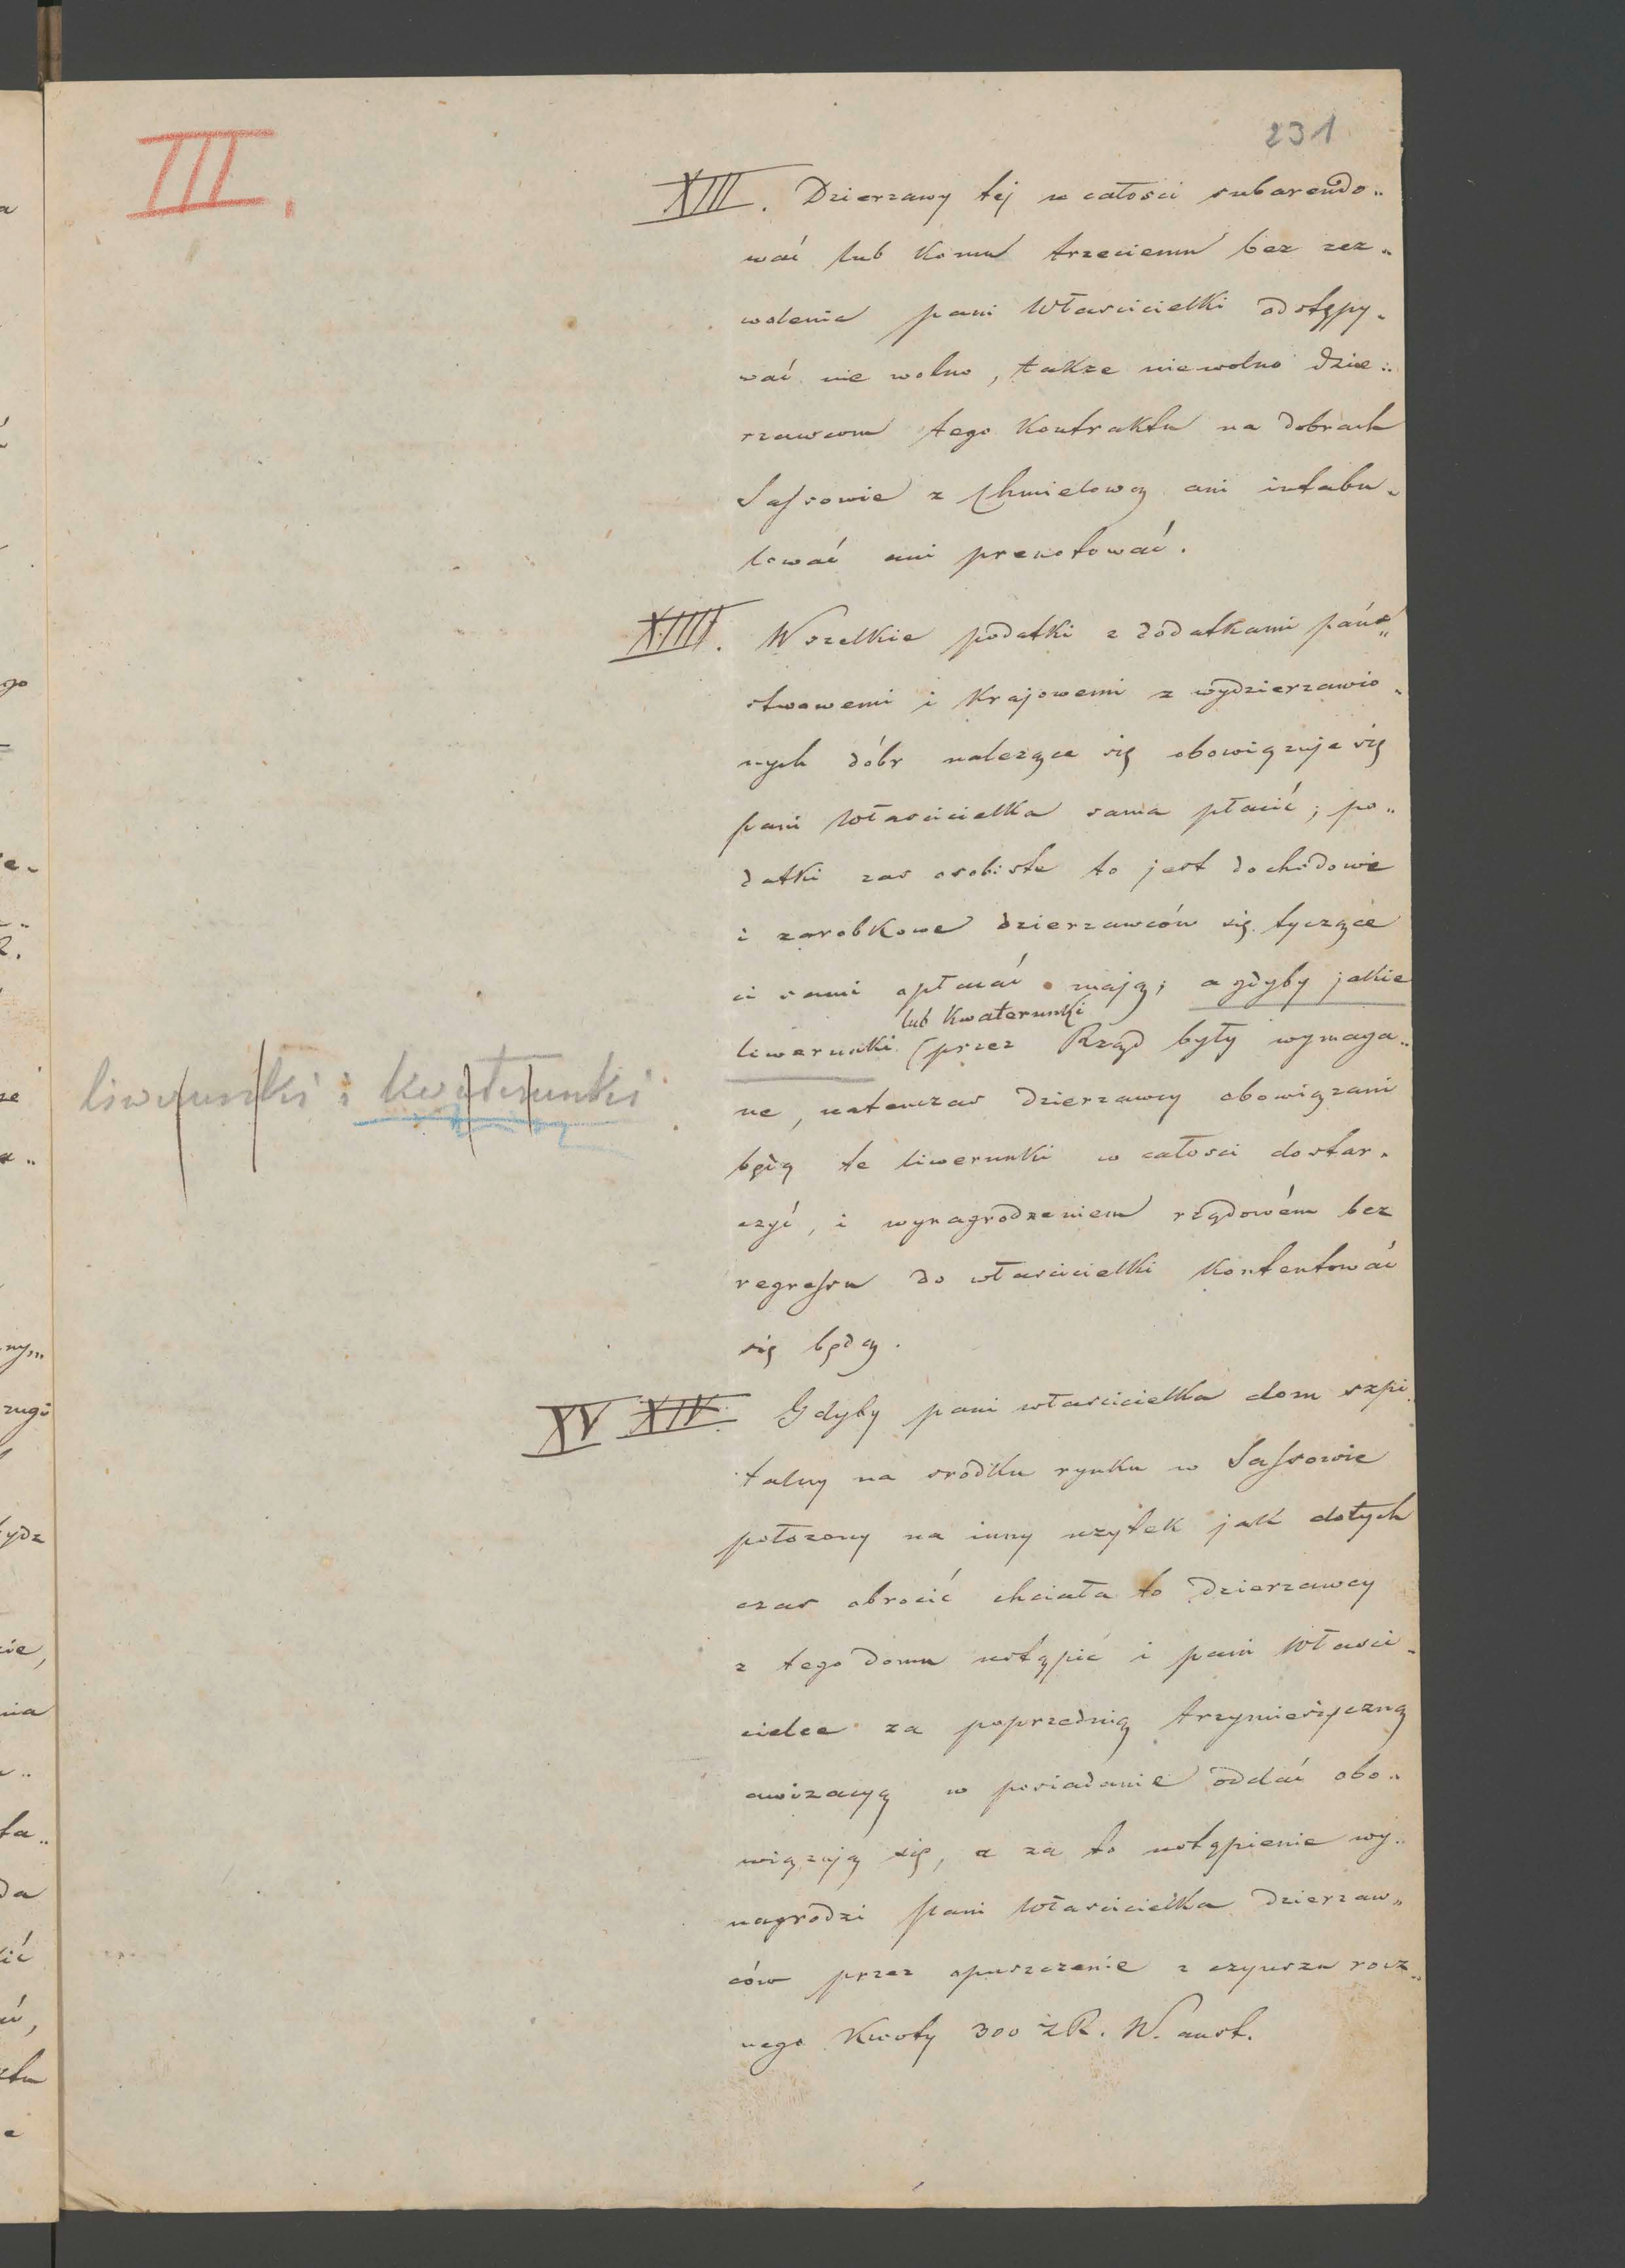 III.
231
XIII. Dzierzawy tej w całosci subarendo„
wać lub komu trzeciemu bez zez„
wolenia pani Własciciełki odstępy„
wać nie wolno, takze niewolno dzie„
rzawcom tego kontraktu na dobrach
Sassowie z Chmielową ani intabu„
lować ani prenotować.
XIIII. Wszelkie podatki z dodatkami pańs„
stwowemi i krajowemi z wydzierzawio„
nych dóbr nalezące się obowiązuje się
pani Własciciełka sama płacić; po„
datki zas osobiste to jest dochodowe
i zarobkowe dzierzawców się tyczące
ci sami opłacać mają; a gdyby jakie
lub kwaterunki
liwerunki (przez Rząd były wymaga„
liwerunki i kwaterunki
ne, natenczas dzierzawcy obowiązani
będą te liwerunki w całosci dostar„
czyć, i wynagrodzeniem rządowém bez
regressu do własciciełki kontentować
się będą.
XV XIV. Gdyby pani własciciełka dom szpi„
talny na srodku rynku w Sassowie
połozony na inny uzytek jak dotych
czas obrocić chciała to dzierzawcy
z tego domu ustąpić i pani Własci„
cielce za poprzednią trzymiesięczną
awizacyą w posiadanie oddać obo„
wiązują się, a za to ustąpienie wy„
nagrodzi pani Własciciełka dzierzaw„
ców przez opuszczenie z czynszu rocz„
nego kwoty 300 zR. W. aust.